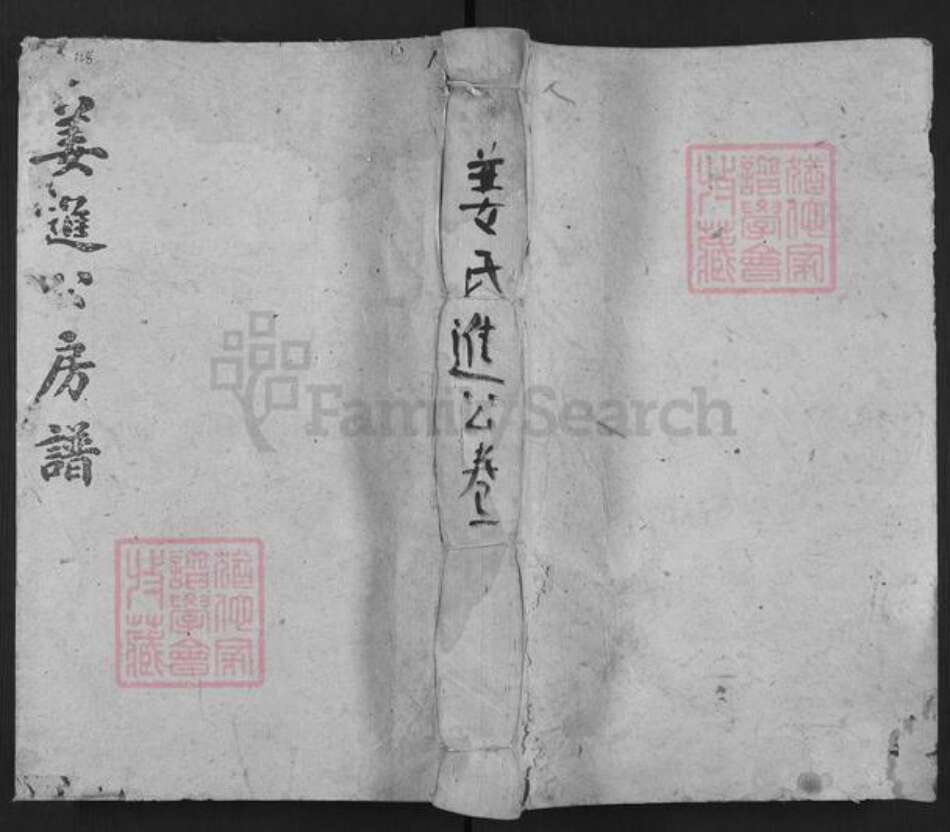 姜進公房譜
姜氏進公卷一
猶他家
譜學會
珍藏
猶他家
譜學會
珍藏
FamilySearch